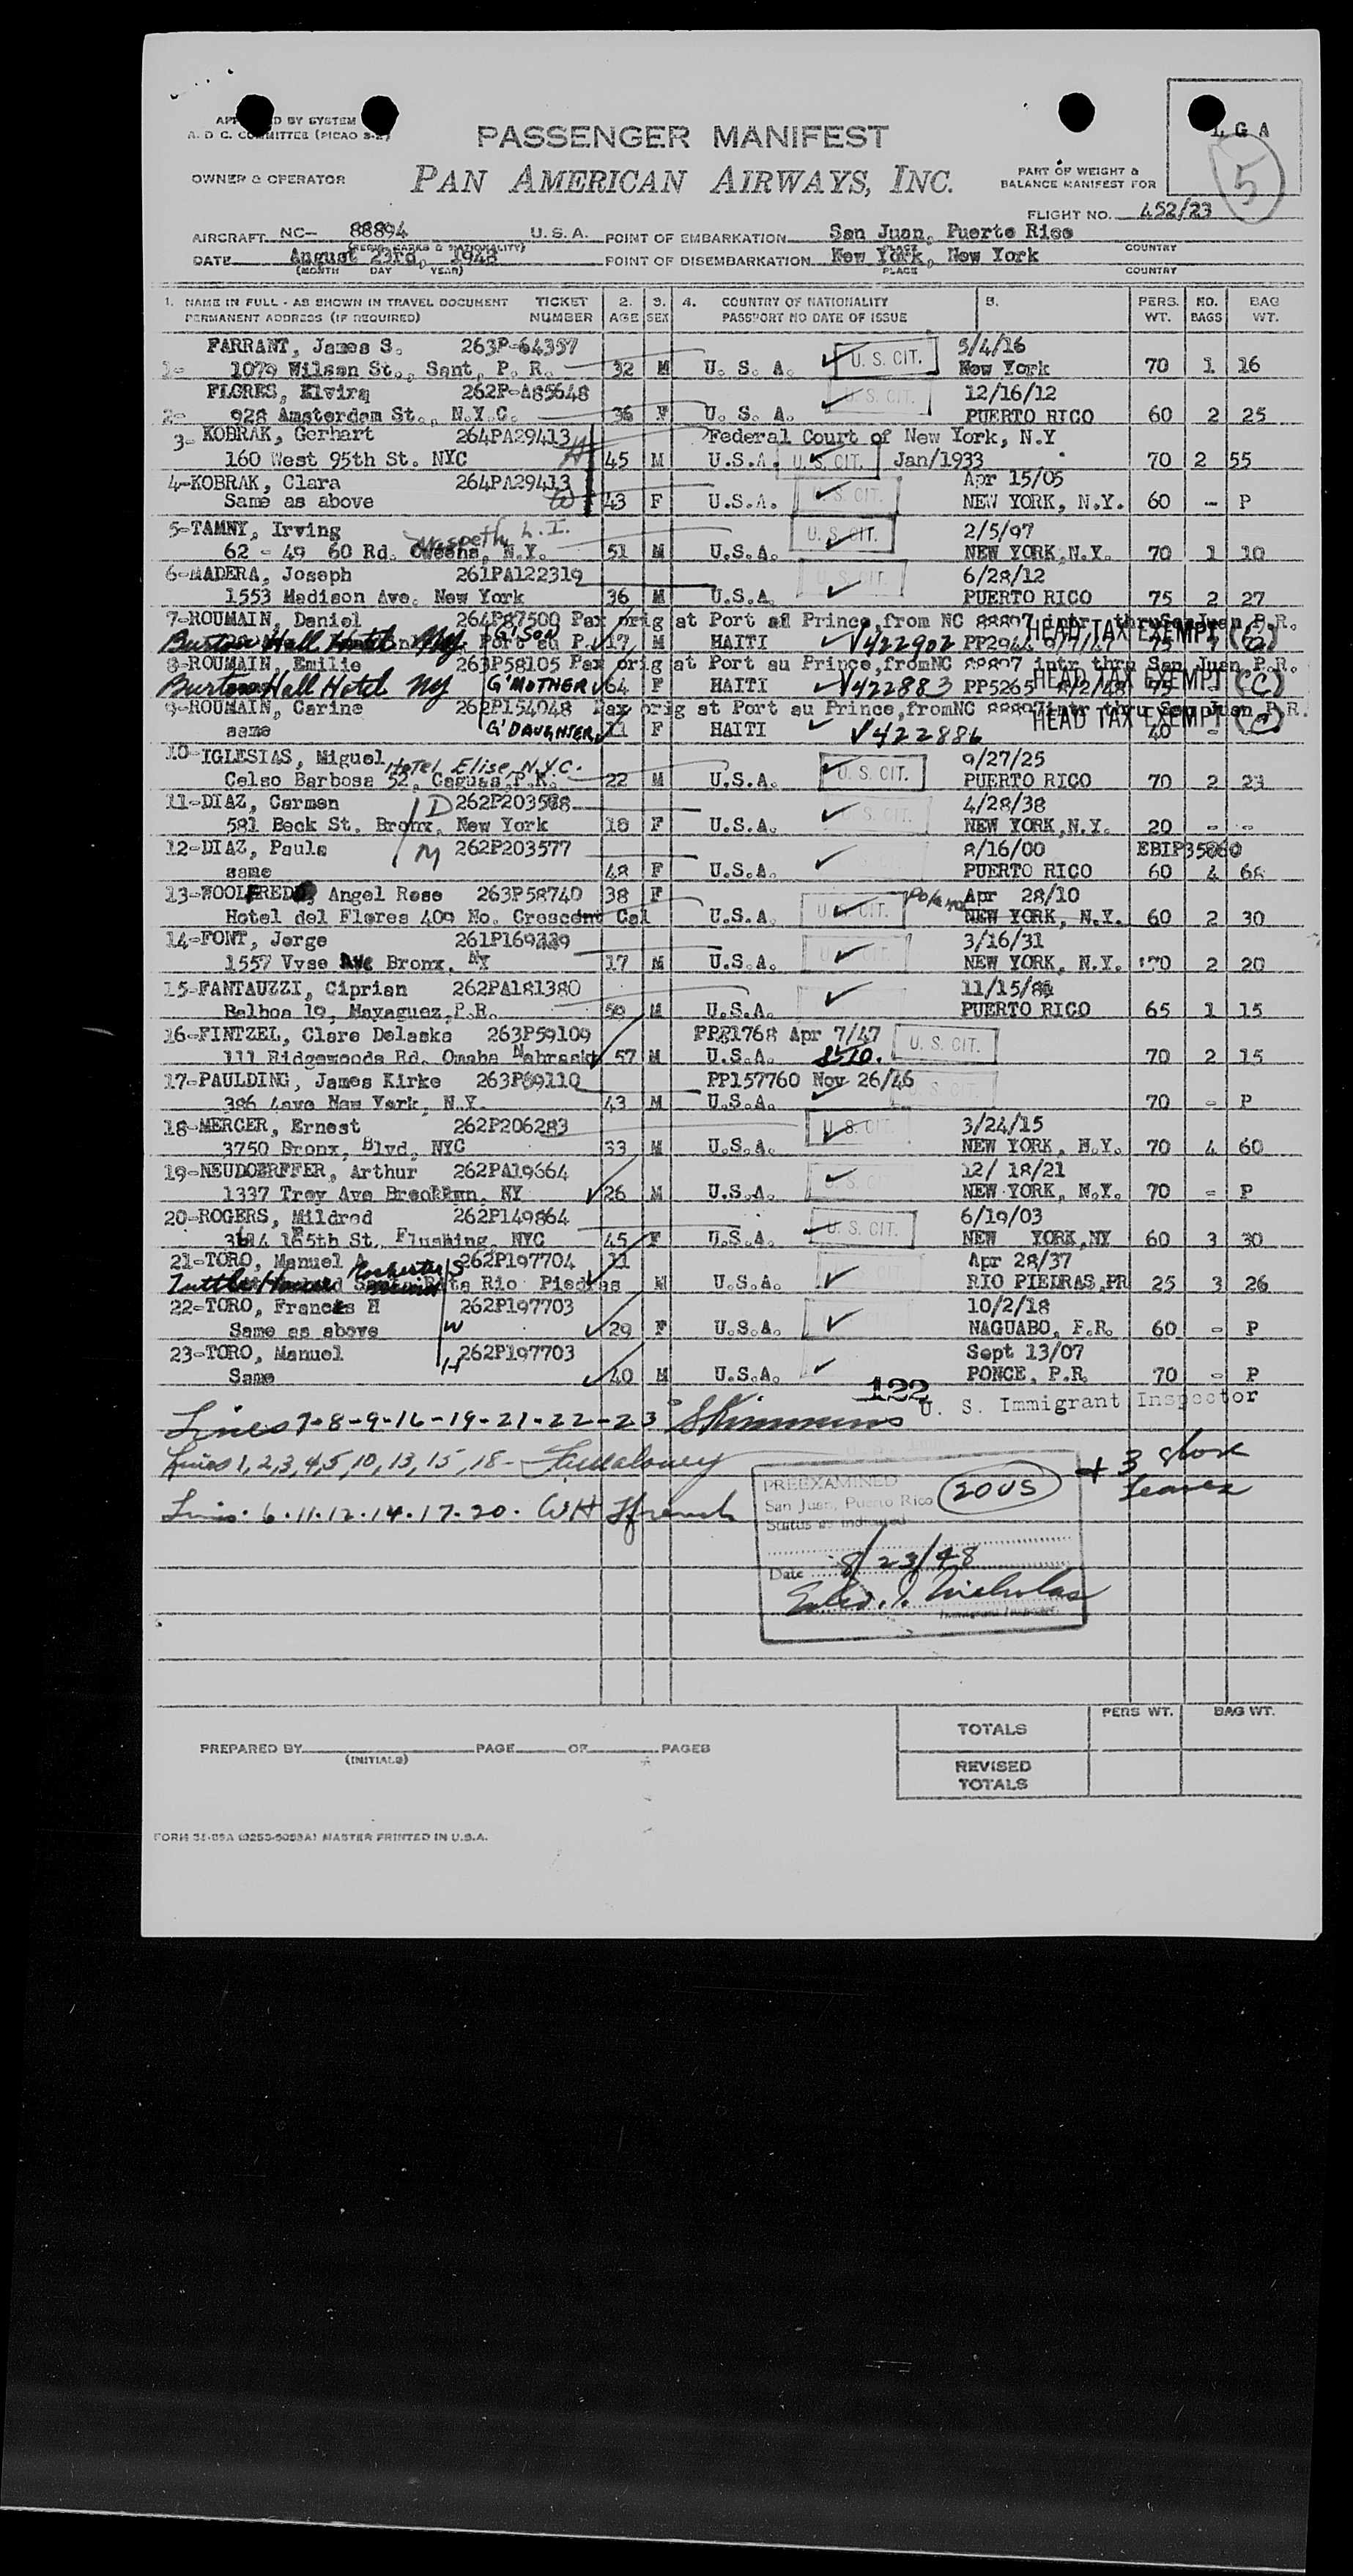 PASSENGER MANIFEST
OWNER & OPERATOR PAN AMERICAN AIRWAYS, INC. PART OF WEIGHT & BALANCE MANIFEST FOR
L G A
5
FLIGHT NO. 452/23
AIRCRAFT NC- 88894 U.S.A. POINT OF EMBARKATION San Juan, Puerto Rico
(REGIS. MARKS & NATIONALITY) PLACE COUNTRY
DATE August 23rd, 1948 POINT OF DISEMBARKATION New York, New York
(MONTH DAY YEAR) PLACE COUNTRY
1. NAME IN FULL - AS SHOWN IN TRAVEL DOCUMENT TICKET 2. 3. 4. COUNTRY OF NATIONALITY 5. PERS. NO. BAG
PERMANENT ADDRESS (IF REQUIRED) NUMBER AGE SEX PASSPORT NO DATE OF ISSUE WT. BAGS WT.
FARRANT, James S. 263P-64357 5/4/16
1- 1079 Wilson St., Sant, P. R. 32 M U. S. A. U. S. CIT. New York 70 1 16
FLORES, Elvira 262P-A85648 12/16/12
2- 928 Amsterdam St., N.Y.C. 36 F U. S. A. U. S. CIT. PUERTO RICO 60 2 25
3- KOBRAK, Gerhart 264PA29413 H Federal Court of New York, N.Y
160 West 95th St. NYC 45 M U.S.A. U. S. CIT. Jan/1933 70 2 55
4-KOBRAK, Clara 264PA29413 W Apr 15/05
Same as above 43 F U.S.A. U. S. CIT. NEW YORK, N.Y. 60 - P
5-TAMNY, Irving Maspeth L.I. U. S. CIT. 2/5/97
62 - 49 60 Rd. Queens, N.Y. 51 M U.S.A. NEW YORK,N.Y. 70 1 10
6-MADERA, Joseph 261PA122319 U. S. CIT. 6/28/12
1553 Madison Ave. New York 36 M U.S.A. PUERTO RICO 75 2 27
7-ROUMAIN, Daniel 264P87500 Pax orig at Port au Prince,from NC 88897 intr thru San Juan P.R.
Burton Hall Hotel NY G'SON Port au P. 17 M HAITI V422902 PP2944 HEAD TAX EXEMPT (C)
8-ROUMAIN, Emilie 263P58105 Pax orig at Port au Prince,fromNC 88897 intr thru San Juan P.R.
Burton Hall Hotel NY G'MOTHER 64 F HAITI V422883 PP5265 8/2/48 75 HEAD TAX EXEMPT (C)
9-ROUMAIN, Carine 262P154048 Pax orig at Port au Prince,fromNC 88897intr thru San Juan P.R.
same G'DAUGHTER 11 F HAITI V422886 HEAD TAX EXEMPT (C) 40 -
10-IGLESIAS, Miguel Hotel Elise N.Y.C. U. S. CIT. 9/27/25
Celso Barbosa 52, Caguas,P.R. 22 M U.S.A. PUERTO RICO 70 2 23
11-DIAZ, Carmen D 262P203578 4/28/38
581 Beck St. Bronx, New York 10 F U.S.A. U. S. CIT. NEW YORK,N.Y. 20 - -
12-DIAZ, Paula M 262P203577 8/16/00 EBIP35060
same 48 F U.S.A. PUERTO RICO 60 4 66
13-WOOLFRED, Angel Rose 263P58740 38 F Poland Apr 28/10
Hotel del Flores 409 No. Crescent Cal U.S.A. U. S. CIT. NEW YORK, N.Y. 60 2 30
14-FONT, Jorge 261P169339 3/16/31
1557 Vyse Ave Bronx, NY 17 M U.S.A. U. S. CIT. NEW YORK, N.Y. 70 2 20
15-FANTAUZZI, Ciprian 262PA181380 11/15/
Balboa 19, Mayaguez,P.R. M U.S.A. PUERTO RICO 65 1 15
16-FINTZEL, Clare Delaska 263P59109 Apr 7/47 U. S. CIT.
111 Ridgewoods Rd. Omaha Nebraska 57 M U.S.A. 70 2 15
17-PAULDING, James Kirke 263P59110 PP157760 Nov 26/46 U. S. CIT.
386 4ave New York, N.Y. 43 M U.S.A. 70 - P
18-MERCER, Ernest 262P206283 U. S. CIT. 3/24/15
3750 Bronx, Blvd, NYC 33 M U.S.A. NEW YORK, N.Y. 70 4 60
19-NEUDOERFFER, Arthur 262PA19664 12/ 18/21
1337 Troy Ave Brooklyn, NY 26 M U.S.A. U. S. CIT. NEW YORK, N.Y. 70 - P
20-ROGERS, Mildred 262P149864 6/19/03
165th St. Flushing, NYC 45 F U.S.A. U. S. CIT. NEW YORK,NY 60 3 30
21-TORO, Manuel A S 262P197704 11 Apr 28/37
Tuttle House Santa Rita Rio Piedras M U.S.A. RIO PIEDRAS,PR 25 3 26
22-TORO, Frances H 262P197703 10/2/18
Same as above W 29 F U.S.A. NAGUABO, P.R. 60 - P
23-TORO, Manuel H 262P197703 Sept 13/07
Same 40 M U.S.A. PONCE, P.R. 70 - P
122 U. S. Immigrant Inspector
Lines 7-8-9-16-19-21-22-23
Lines 1,2,3,4,5,10,13,15,18-
+ 3 store
Lines. 6.11.12.14.17.20. WH Ffrench
PREEXAMINED
San Juan, Puerto Rico 20US
Status as indicated
Date 8/23/48
Nicholas
TOTALS PERS WT. BAG WT.
PREPARED BY (INITIALS) PAGE OF PAGES
REVISED
TOTALS
MASTER PRINTED IN U.S.A.